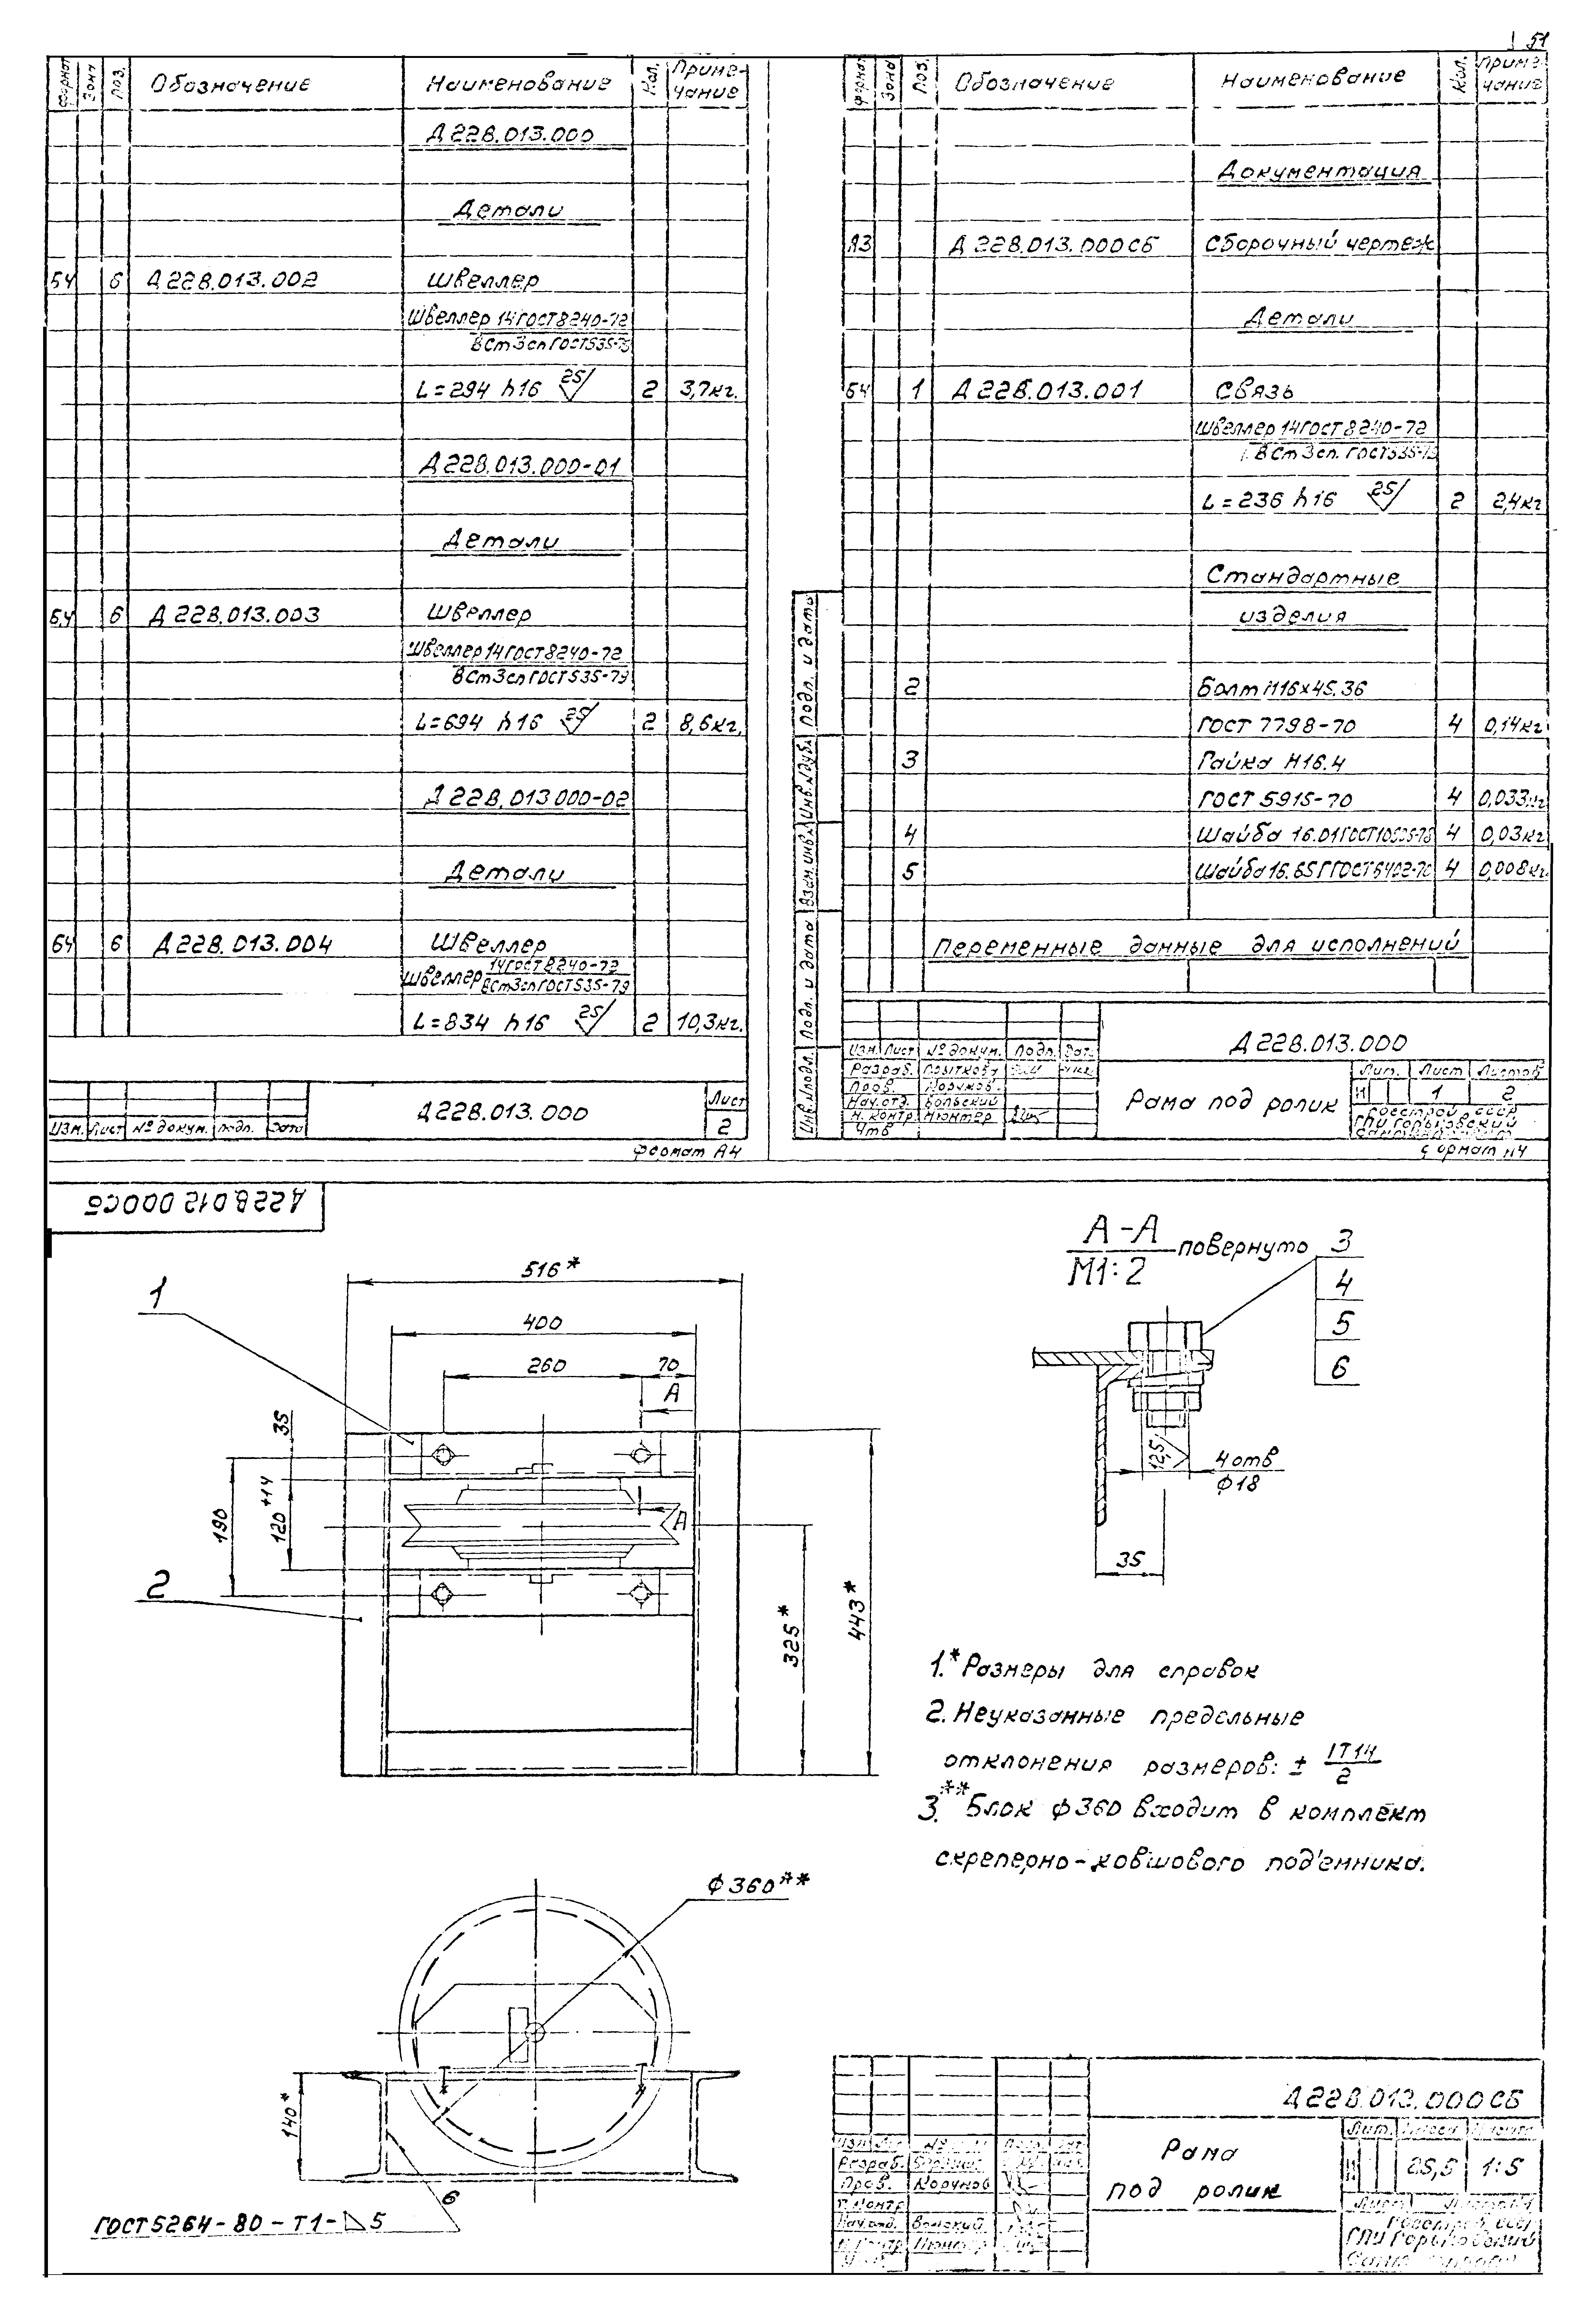 51
Формат
Зона
Поз.
Обозначение
Наименование
Кол.
Приме-
чание
Д228.013.000
Детали
БЧ 6 Д228.013.002 Швеллер
Швеллер 14 ГОСТ 8240-72
ВСт3сп ГОСТ 535-79
L=294 h16 25 2 3,7кг.
Д228.013.000-01
Детали
БЧ 6 Д228.013.003 Швеллер
Швеллер 14 ГОСТ 8240-72
ВСт3сп ГОСТ 535-79
L=694 h16 25 2 8,6кг.
Д228.013000-02
Детали
БЧ 6 Д228.013.004 Швеллер
Швеллер 14 ГОСТ 8240-72
ВСт3сп ГОСТ 535-79
L=834 h16 25 2 10,3кг.
Изм. Лист № докум. Подп. Дата
Д228.013.000
Лист
2
Формат А4
Формат
Зона
Поз.
Обозначение
Наименование
Кол.
Приме-
чание
Документация
А3 Д228.013.000СБ Сборочный чертеж
Детали
БЧ 1 Д228.013.001 Связь
Швеллер 14 ГОСТ 8240-72
ВСт3сп. ГОСТ 535-79
L=236 h16 25 2 2,4кг
Стандартные
изделия
2 Болт М16×45.36
ГОСТ 7798-70 4 0,14кг
3 Гайка М16.4
ГОСТ 5915-70 4 0,033кг
4 Шайба 16.01 ГОСТ 10906-78 4 0,03кг
5 Шайба 16.65Г ГОСТ 6402-70 4 0,008кг.
Переменные данные для исполнений
Инв.№подл.
Подп. и дата
Взам.инв.№
Инв.№дубл.
Подп. и дата
Изм. Лист № докум. Подп. Дат.
Разраб. Прыткова
Пров.
Нач.отд.
Н. контр. Мюнтер
Утв
Д228.013.000
Рама под ролик
Лит. Лист Листов
И 1 2
Госстрой СССР
ГПИ Горьковский
Формат А4
Д228.012.000СБ
516*
400
260
70
А
1
2
35
120+14
190
А
325*
443*
А-А
М1:2
повернуто
3
4
5
6
12,5
4 отв
ф18
35
1.* Размеры для справок
2. Неуказанные предельные
отклонения размеров: ± IT14
2
3.** Блок ф360 входит в комплект
скреперно-ковшового под'емника.
ф360**
140*
6
ГОСТ 5264-80-Т1-5
Д228.012.000СБ
Рама
под ролик
Изм
Разраб.
Пров. Корунов
Т. контр
Нач.отд.
Н. контр Мюнтер
Лит. Масса
И 25,5 1:5
Лист
ГПИ Горьковский